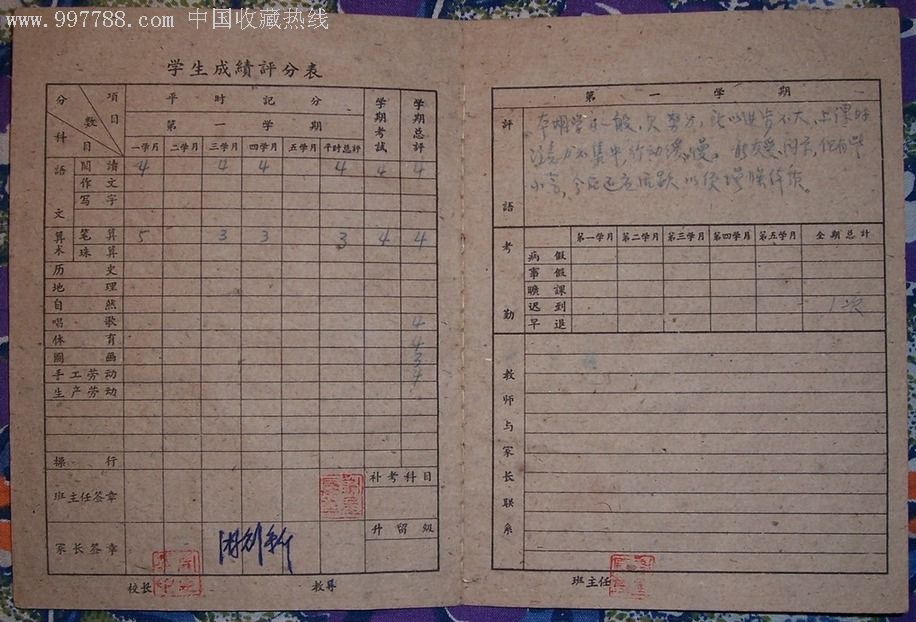 www.997788.com 中国收藏热线
学生成績評分表
分 項
数 目
科 目
平时記分
第一学期
一学月 二学月 三学月 四学月 五学月 平时总評
学期考試
学期总評
語文
閱讀 4 4 4 4 4 4
作文
写字
算术
笔算 5 3 3 3 4 4
珠算
历史
地理
自然
唱歌 4
体育 4
圖画 3
手工劳动 4
生产劳动
操行
班主任签章
补考科目
家长签章
升留級
校长
教导
第一学期
評語
本期学习一般,欠努力,所以进步不大,上課时
注意力不集中,行动
考勤
第一学月 第二学月 第三学月 第四学月 第五学月 全期总計
病假
事假
曠課
迟到 1次
早退
教师与家长联系
班主任